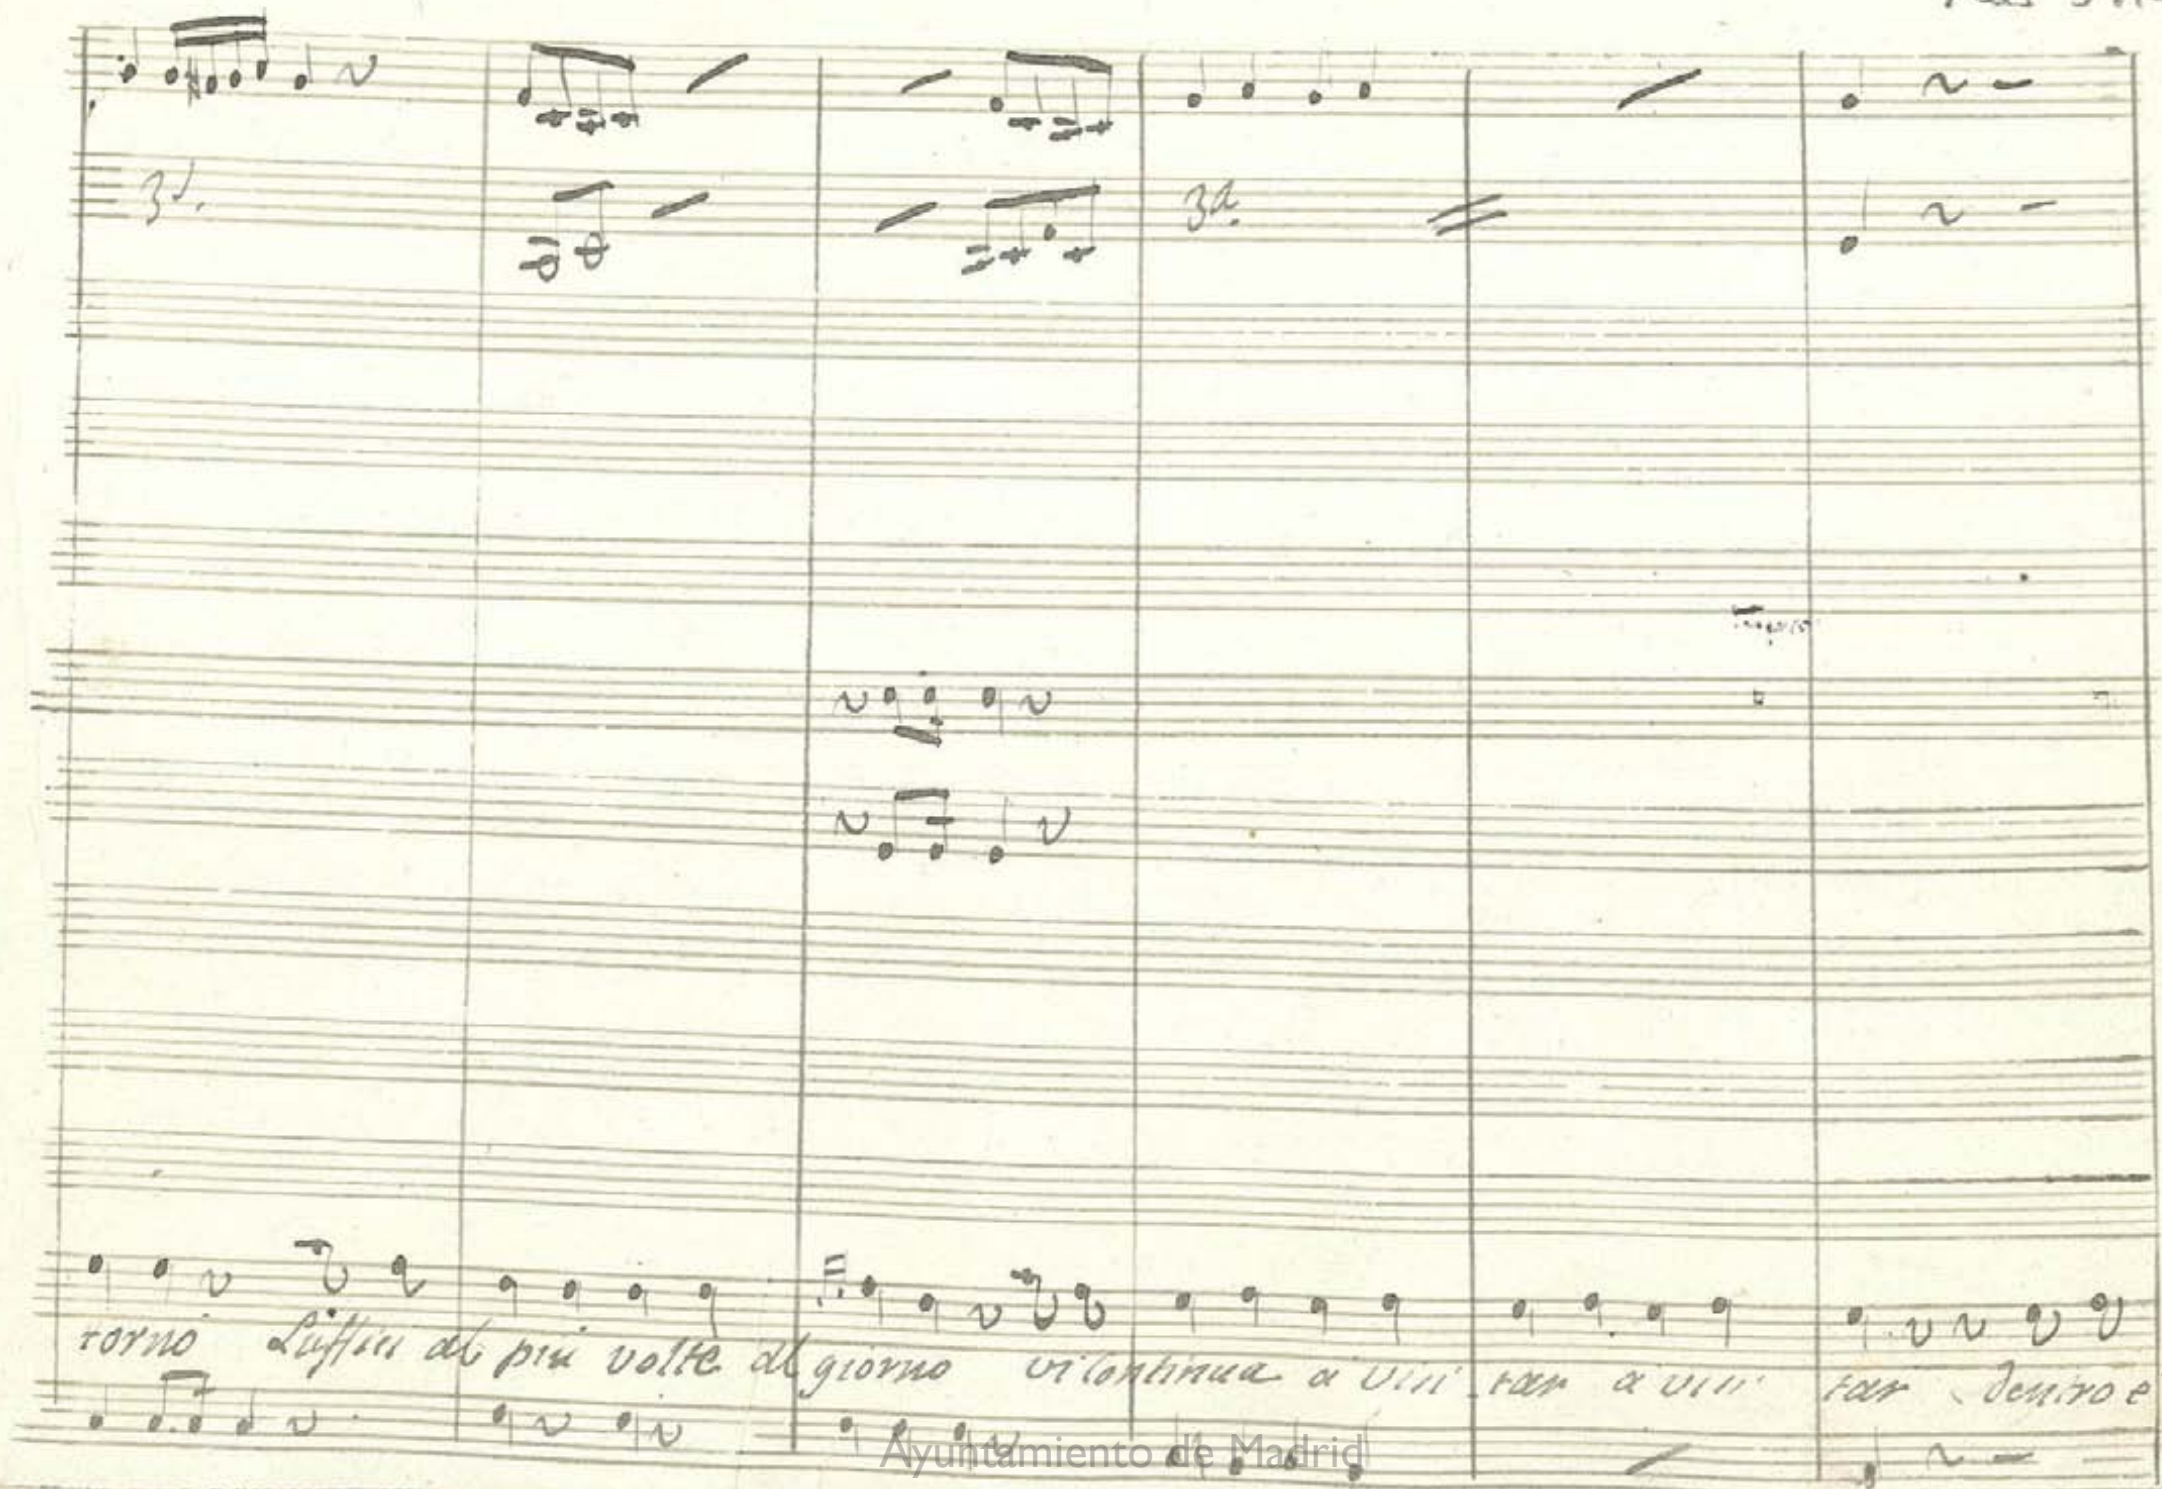 3ª.
3ª.
torno Luffizi al piu volte al giorno vi continua a visi tar a visi tar dentro e
Ayuntamiento de Madrid